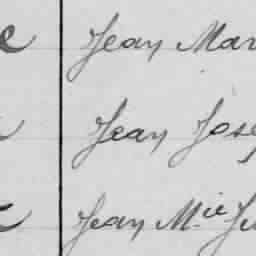 Jean Mar
Jean Jose
Jean Mie Ju